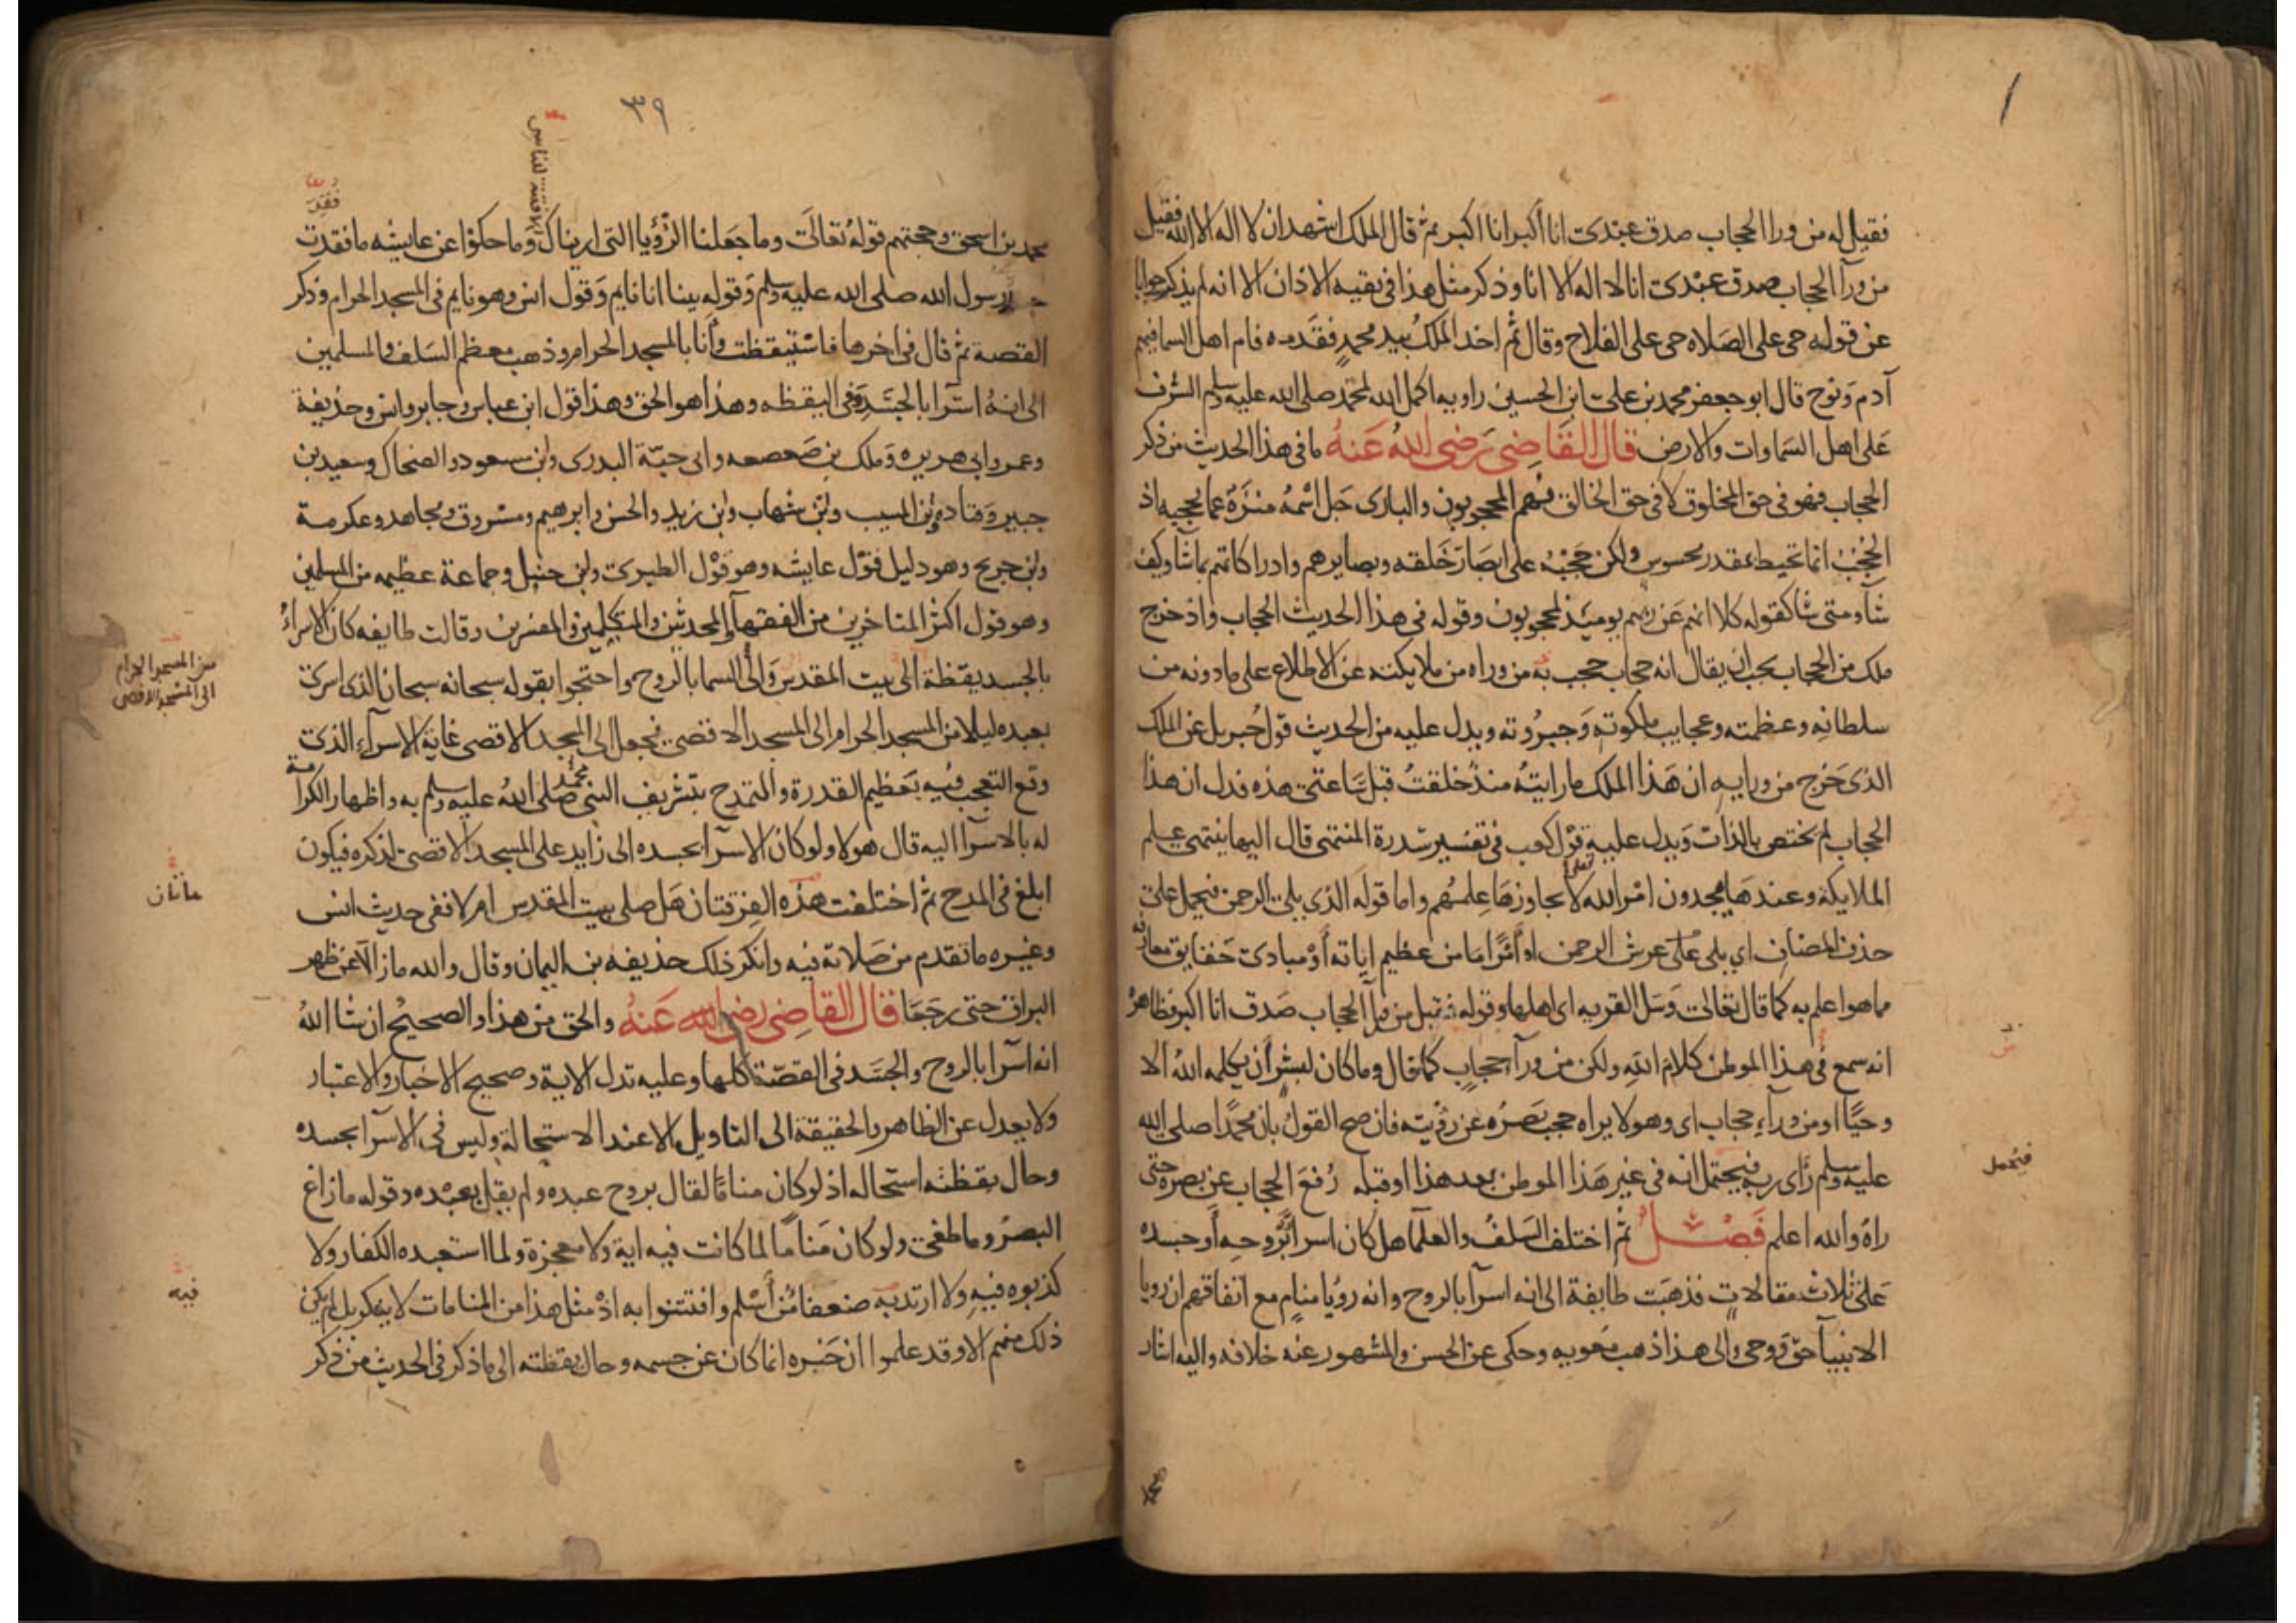 فقيل له من ورا الحجاب صدق عبدى انا اكبر انا اكبر ثم قال الملك اشهد ان لا اله الا الله فقيل
من ورآ الحجاب صدق عبدى انا لا اله الا انا وذكر مثل هذا فى بقيه الاذان الا انه لم يذكر جوابا
عن قوله حى على الصلاه حى على الفلاح وقال ثم اخذ الملك بيد محمد فقدمه فام اهل السما فيهم
آدم ونوح قال ابو جعفر محمد بن على ابن الحسين راويه اكمل الله لمحمد صلى الله عليه وسلم الشرف
على اهل السماوات والارض قال القاضى رضى الله عنه ما فى هذا الحديث من ذكر
الحجاب فهو فى حق المخلوق لا فى حق الخالق فهم المحجوبون والبارى جل اسمه منزه عما يحجبه اذ
الحجب انما تحيط بمقدر محسوس ولكن حجبه على ابصار خلقه وبصايرهم وادراكاتهم بما شا وكيف
شا ومتى شا كقوله كلا انهم عن ربهم يوميذ لمحجوبون وقوله فى هذا الحديث الحجاب واذ خرج
ملك من الحجاب يجب ان يقال انه حجاب حجب به من وراه من ملايكته عن الاطلاع على ما دونه من
سلطانه وعظمته وعجايب ملكوته وجبروته ويدل عليه من الحديث قول جبريل عن الملك
الذى خرج من ورايه ان هذا الملك ما رايته منذ خلقت قبل ساعتى هذه فدل ان هذا
الحجاب لم يختص بالذات ويدل عليه قول كعب فى تفسير سدرة المنتهى قال اليها ينتهى علم
الملايكة وعندها يجدون امر الله تعالى لا يجاوزها علمهم واما قوله الذى يلى الرحمن فيحمل على
حذف المضاف اي يلى على عرش الرحمن او أمرا ما من عظيم اياته أو مبادى حقايق معارفه
ما هو اعلم به كما قال تعالى وسل القريه اى اهلها وقوله فقيل من ورآ الحجاب صدق انا اكبر فظاهره
انه سمع فى هذا الموطن كلام الله ولكن من ورآ حجاب كما قال وما كان لبشر أن يكلمه الله الا
وحيًا او من ورآء حجاب اى وهو لا يراه حجب بصره عن رؤيته فان صح القول بان محمدًا صلى الله
عليه وسلم رأى ربه فيحتمل انه فى غير هذا الموطن بعد هذا او قبله رفع الحجاب عن بصره حتى
فيحمل
راه والله اعلم فصل ثم اختلف السلف والعلما هل كان اسرا بروحه أو جسده
على ثلاث مقالات فذهبت طايفة الى انه اسرآ بالروح وانه رؤيا منام مع اتفاقهم ان رويا
الانبيآ حق ووحى والى هذا ذهب معويه وحكى عن الحسن والمشهور عنه خلافه واليه اشار
٣٩
الا فتنة للناس
فقد
محمد بن اسحق وحجتهم قوله تعالى وما جعلنا الرؤيا التى اريناك وما حكوا عن عايشه ما فقدت
جسد رسول الله صلى الله عليه وسلم وقوله بينا انا نايم وقول انس وهو نايم فى المسجد الحرام وذكر
القصة ثم قال فى اخرها فاستيقظت وأنا بالمسجد الحرام وذهب معظم السلف والمسلمين
الى انه اسرآ بالجسد وفى اليقظه وهذا هو الحق وهذا قول ابن عباس وجابر وانس وحذيفة
وعمر وابى هريره وملك بن صعصعه وابى حبة البدرى وابن مسعود والضحاك وسعيد بن
جبير وقتاده وابن المسيب وابن شهاب وابن زيد والحسن وابرهيم ومسروق ومجاهد وعكرمة
وابن جريج وهو دليل قول عايشه وهو قول الطبرى وابن حنبل وجماعة عظيمه من المسلمين
وهو قول اكثر المتاخرين من الفقهآ والمحدثين والمتكلمين والمفسرين وقالت طايفه كان الاسرآء
بالجسد يقظة الى بيت المقدس والى السما بالروح واحتجوا بقوله سبحانه سبحان الذى اسرى
من المسجد الحرام
الى المسجد الاقصى
بعبده ليلا من المسجد الحرام الى المسجد الاقصى فجعل الى المسجد الاقصى غاية الاسرآء الذى
وقع التعجب فيه بعظيم القدرة والتمدح بتشريف النبى محمد صلى الله عليه وسلم به واظهار الكرامة
له بالاسرآ اليه قال هولا ولو كان الاسرآ بجسده الى زايد على المسجد الاقصى لذكره فيكون
ابلغ فى المدح ثم اختلفت هذه الفرقتان هل صلى ببيت المقدس ام لا ففى حديث انس
وغيره ما تقدم من صلاته فيه وانكر ذلك حذيفه بن اليمان وقال والله ما زالا عن ظهر
البراق حتى رجعا قال القاضى رضى الله عنه والحق من هذا والصحيح ان شا الله
انه اسرآ بالروح والجسد فى القصة كلها وعليه تدل الاية وصحيح الاخبار والاعتبار
ولا يعدل عن الظاهر والحقيقة الى التاويل الا عند الاستحالة وليس فى الاسرآ بجسده
وحال يقظته استحاله اذ لو كان منامًا لقال بروح عبده ولم يقل بعبده وقوله ما زاغ
البصر وما طغى ولو كان منامًا لما كانت فيه اية ولا معجزة ولما استبعده الكفار ولا
فيه
كذبوه فيه ولا ارتد به ضعفا من أسلم وافتتنوا به اذ مثل هذا من المنامات لا ينكر بل لم يكن
ذلك منهم الا وقد علموا ان خبره انما كان عن جسمه وحال يقظته الى ما ذكر فى الحديث من ذكر